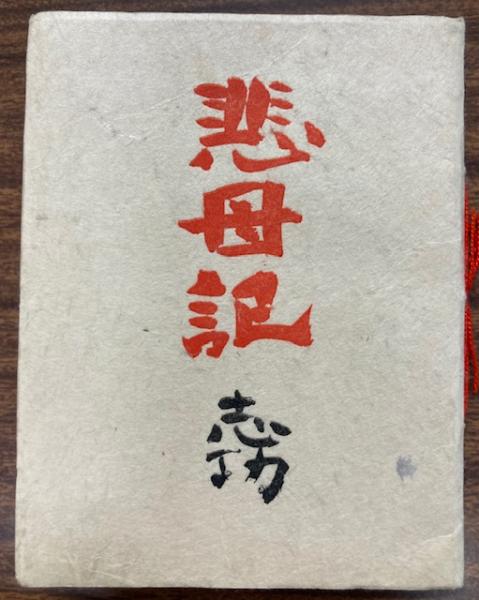 悲母記
志功